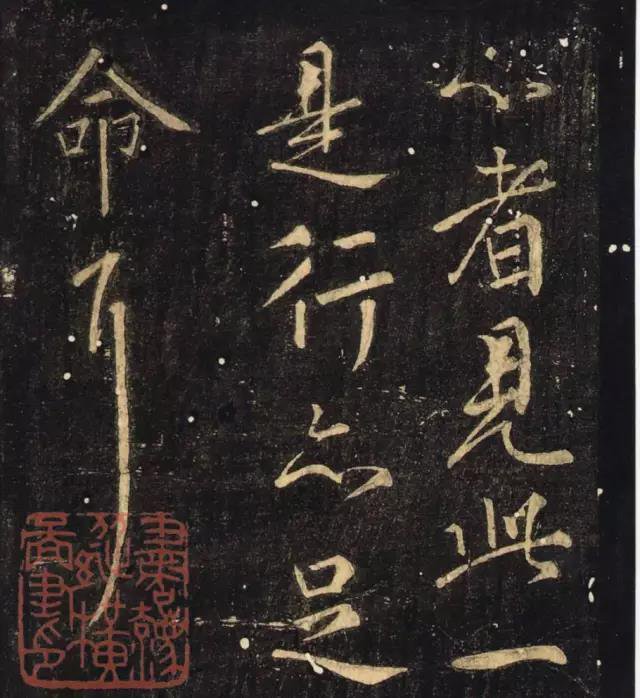 心者見此一
是行亦足
命了